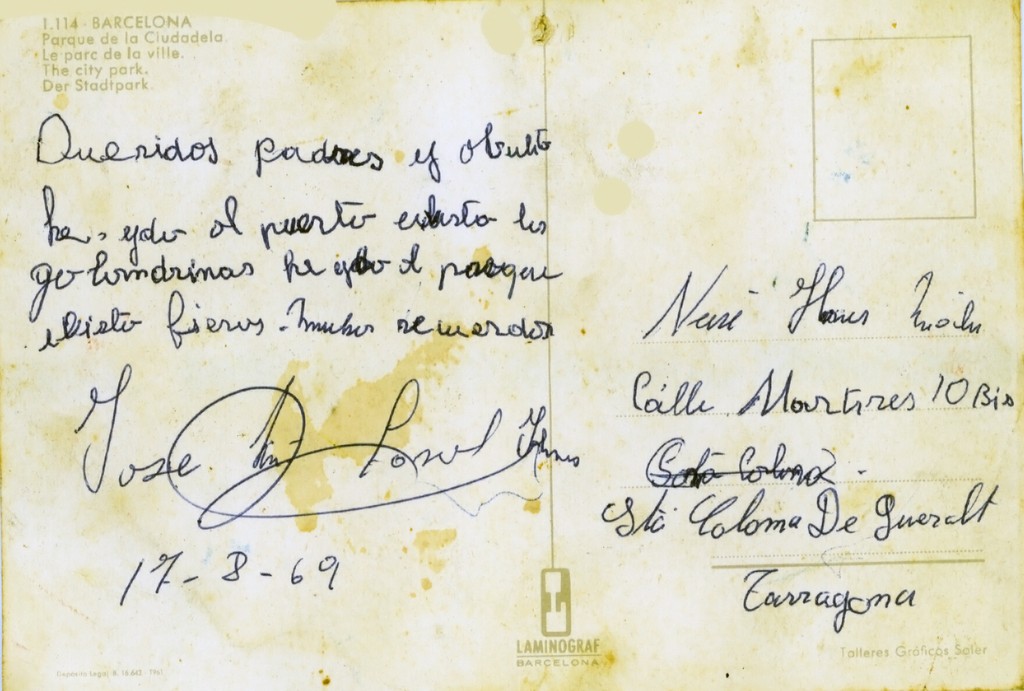 1.114 - BARCELONA
Parque de la Ciudadela
Le parc de la ville.
The city park.
Der Stadtpark.
Queridos padres y
he ydo al puerto e visto las
golondrinas he ydo al parque
e visto fieras. Muchos recuerdos
Jose
17-8-69
Calle Martires 10 Bis
Sta Coloma
Sta Coloma De Queralt
Tarragona
LAMINOGRAF
BARCELONA
Talleres Gráficos Soler
Depósito Legal, B. 18.642 - 1961